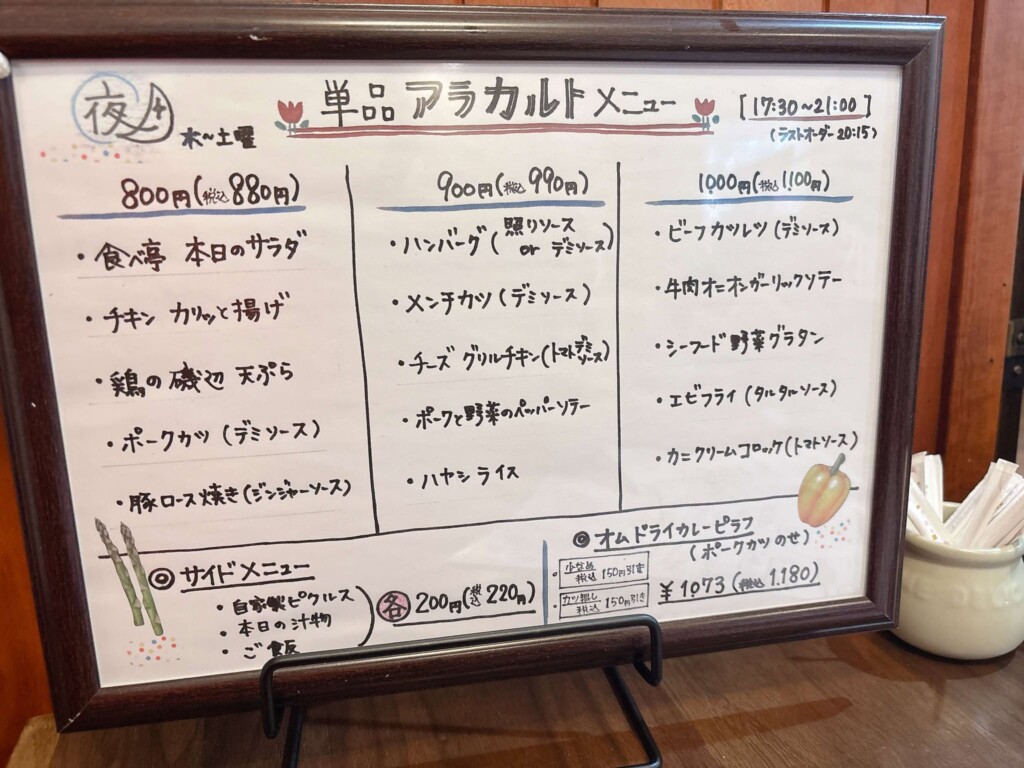 夜
水～土曜
単品 アラカルト メニュー
[17:30～21:00]
(ラストオーダー 20:15)
800円(税込880円)
・食べ亭 本日のサラダ
・チキン カリッと揚げ
・鶏の磯辺 天ぷら
・ポークカツ (デミソース)
・豚ロース焼き(ジンジャーソース)
900円(税込990円)
・ハンバーグ(照りソース
or デミソース)
・メンチカツ (デミソース)
・チーズ グリルチキン(トマトデミ
ソース)
・ポークと野菜のペッパーソテー
・ハヤシライス
1000円(税込1100円)
・ビーフカツレツ (デミソース)
・牛肉オニオンガーリックソテー
・シーフード野菜グラタン
・エビフライ (タルタルソース)
・カニクリームコロッケ(トマトソース)
◎サイドメニュー
・自家製ピクルス
・本日の汁物
・ご飯
各 200円(税込220円)
◎オムドライカレーピラフ
(ポークカツ のせ)
・小さめ
税込 150円引き
・カツ無し
税込 150円引き
¥1073(税込 1.180)